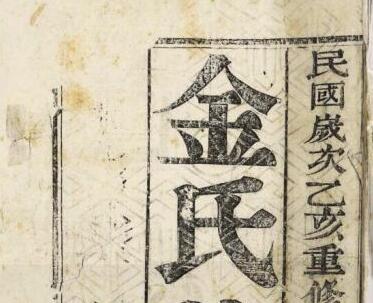 民國歲次乙亥重修
金氏